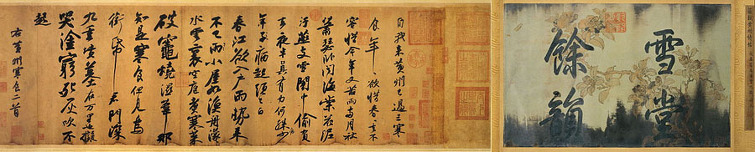 雪堂
餘韻
自我來黃州已過三寒
食年年欲惜春春去不
容惜今年又苦雨兩月秋
蕭瑟臥聞海棠花泥
汙燕支雪闇中偷負
去夜半真有力何殊少
年子病起頭已白
春江欲入戶雨勢來
不已雨小屋如漁舟濛濛
水雲裏空庖煮寒菜
破竈燒濕葦那
知是寒食但見烏
銜帋君門深
九重墳墓在万里也擬
哭塗窮死灰吹不
起
右黃州寒食二首